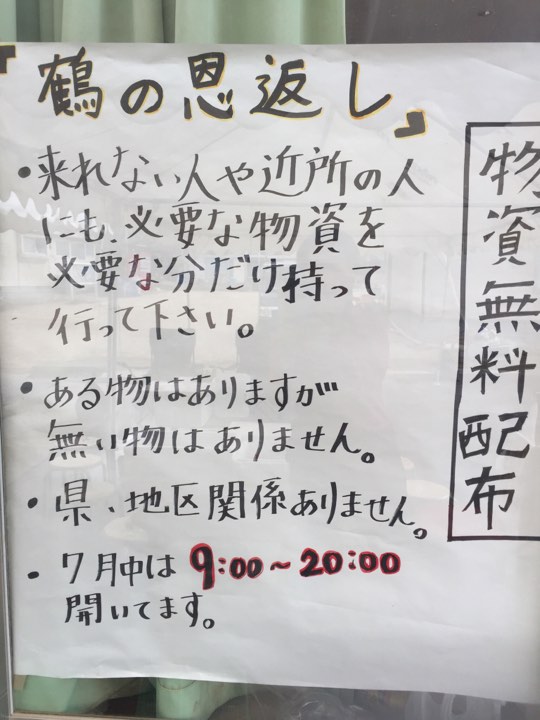 『鶴の恩返し』
物資無料配布
・来れない人や近所の人
にも、必要な物資を
必要な分だけ持って
行って下さい。
・ある物はありますが
無い物はありません。
・県、地区関係ありません。
・7月中は 9:00～20:00
開いてます。